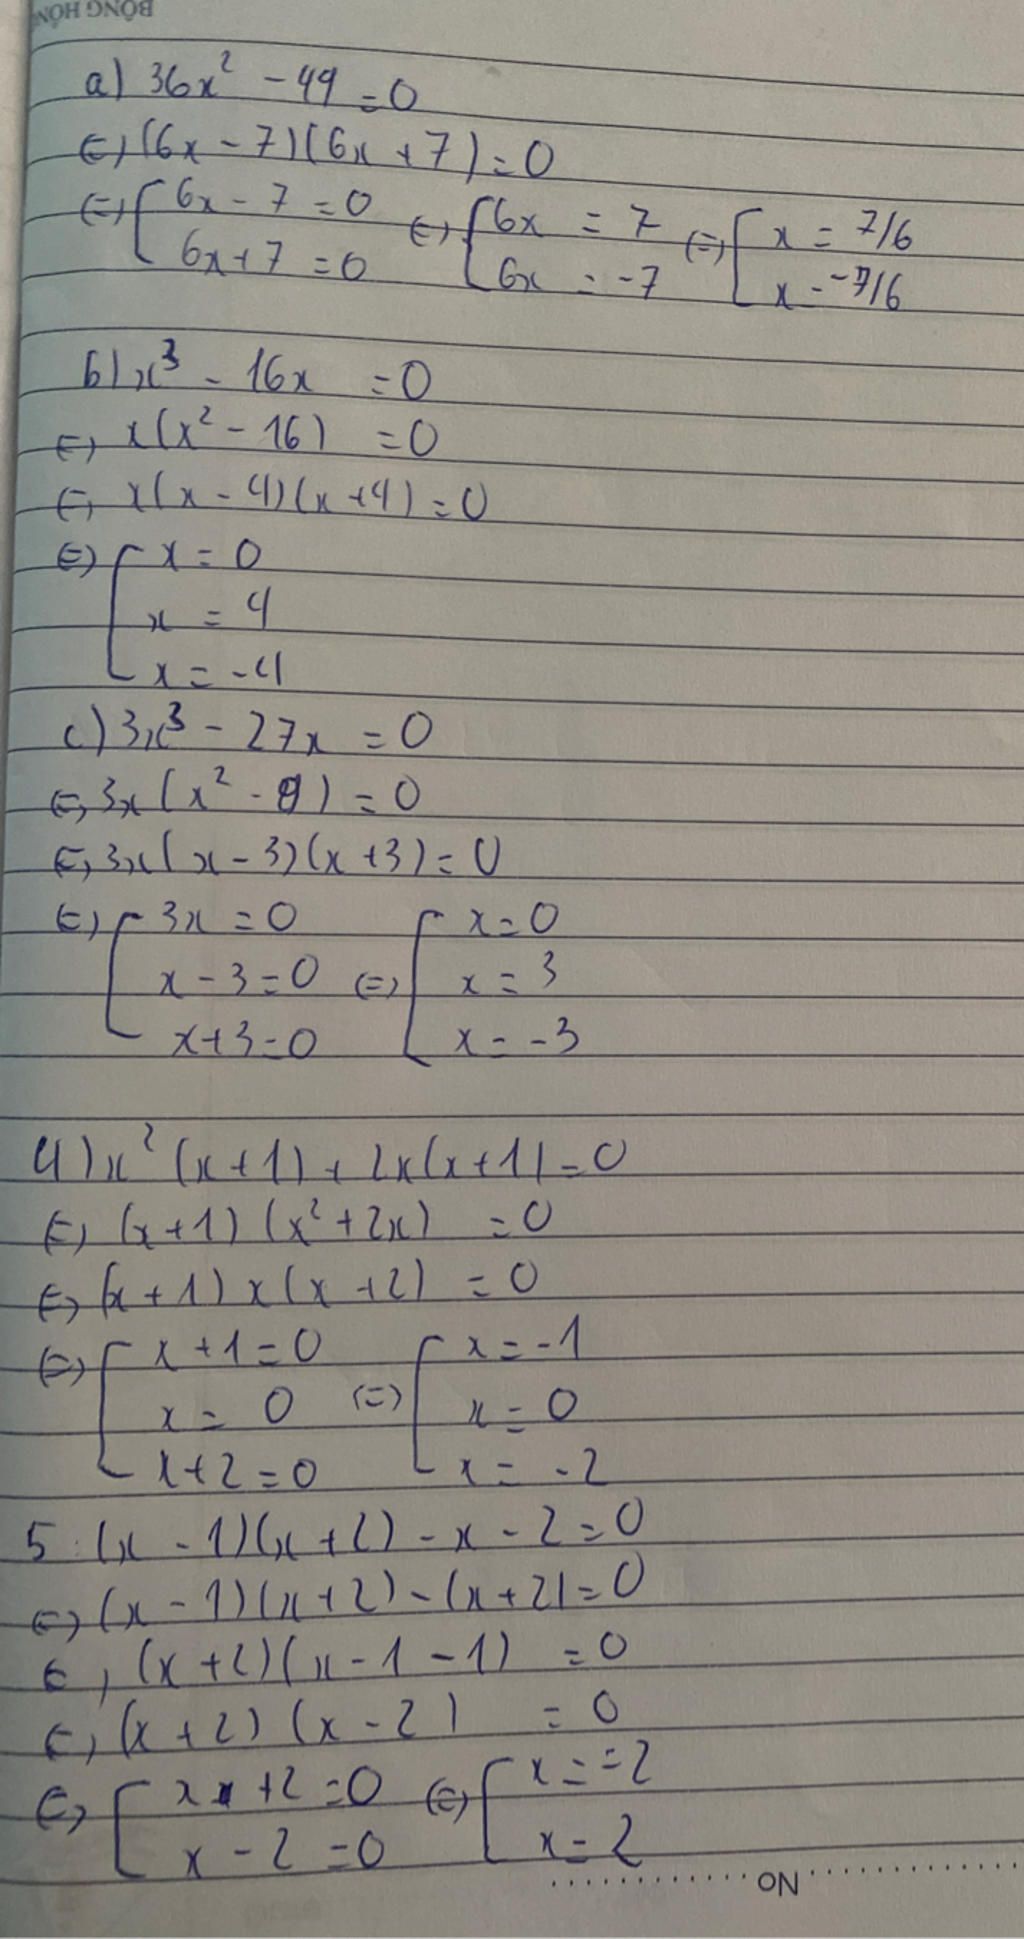 BÔNG HỒNG
a) 36x² - 49 = 0
⇔ (6x - 7)(6x + 7) = 0
⇔ [ 6x - 7 = 0 ⇔ [ 6x = 7 ⇔ [ x = 7/6
6x + 7 = 0 6x = -7 x = -7/6
b) x³ - 16x = 0
⇔ x(x² - 16) = 0
⇔ x(x - 4)(x + 4) = 0
⇔ [ x = 0
x = 4
x = -4
c) 3x³ - 27x = 0
⇔ 3x(x² - 9) = 0
⇔ 3x(x - 3)(x + 3) = 0
⇔ [ 3x = 0 [ x = 0
x - 3 = 0 ⇔ x = 3
x + 3 = 0 x = -3
4) x² (x + 1) + 2x(x + 1) = 0
⇔ (x + 1) (x² + 2x) = 0
⇔ (x + 1) x (x + 2) = 0
⇔ [ x + 1 = 0 [ x = -1
x = 0 ⇔ x = 0
x + 2 = 0 x = -2
5: (x - 1)(x + 2) - x - 2 = 0
⇔ (x - 1)(x + 2) - (x + 2) = 0
⇔ (x + 2)(x - 1 - 1) = 0
⇔ (x + 2) (x - 2) = 0
⇔ [ x + 2 = 0 ⇔ [ x = -2
x - 2 = 0 x = 2
NO